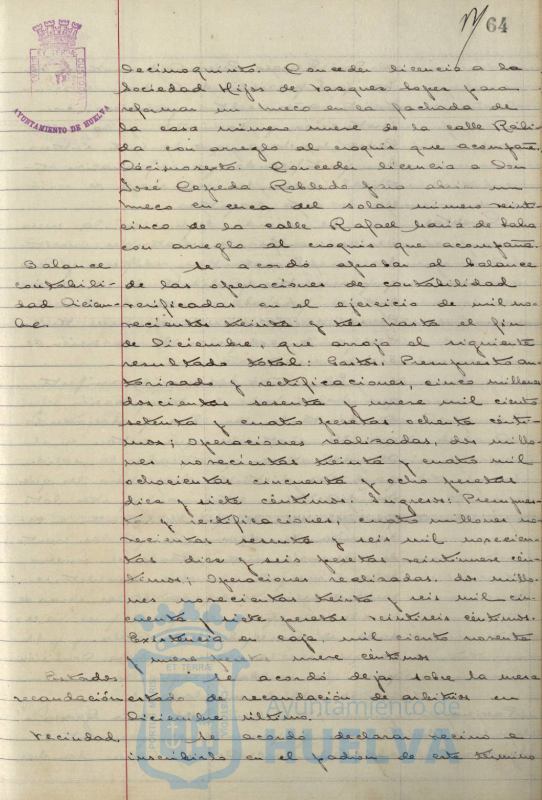 64
AYUNTAMIENTO DE HUELVA
Decimoquinto. Conceder licencia a la
Sociedad Hijos de Vazquez Lopez para
reformar un hueco en la fachada de
la casa número nueve de la calle Rábi-
da con arreglo al croquis que acompaña.
Décimosexto. Conceder licencia a Don
José Cepeda Robledo para abrir un
hueco en cerca del solar número vein-
cinco de la calle Rafael María de Labra
con arreglo al croquis que acompaña.
Balance
contabili-
dad Diciem-
bre.
Se acordó aprobar el balance
de las operaciones de contabilidad
verificadas en el ejercicio de mil no-
vecientos treinta y tres hasta el fin
de Diciembre, que arroja el siguiente
resultado total: Gastos; Presupuesto au-
torizado y rectificaciones, cinco millones
doscientas sesenta y nueve mil ciento
setenta y cuatro pesetas ochenta cénti-
mos; Operaciones realizadas, dos millo-
nes novecientas treinta y cuatro mil
ochocientas cincuenta y ocho pesetas
diez y siete céntimos: Ingresos: Presupues-
to y rectificaciones, cuatro millones no-
vecientas sesenta y seis mil novecien-
tas diez y seis pesetas veintinueve cén-
timos; Operaciones realizadas, dos millo-
nes novecientas treinta y seis mil cin-
cuenta y siete pesetas veintiseis céntimos.
Existencia en caja, mil ciento noventa
y nueve pesetas nueve céntimos
Estados
recaudación
Se acordó dejar sobre la mesa
estado de recaudación de arbitrios en
Diciembre último.
Vecindad.
Se acordó declarar vecino e
inscribirlo en el padrón de este término
Ayuntamiento de
HUELVA